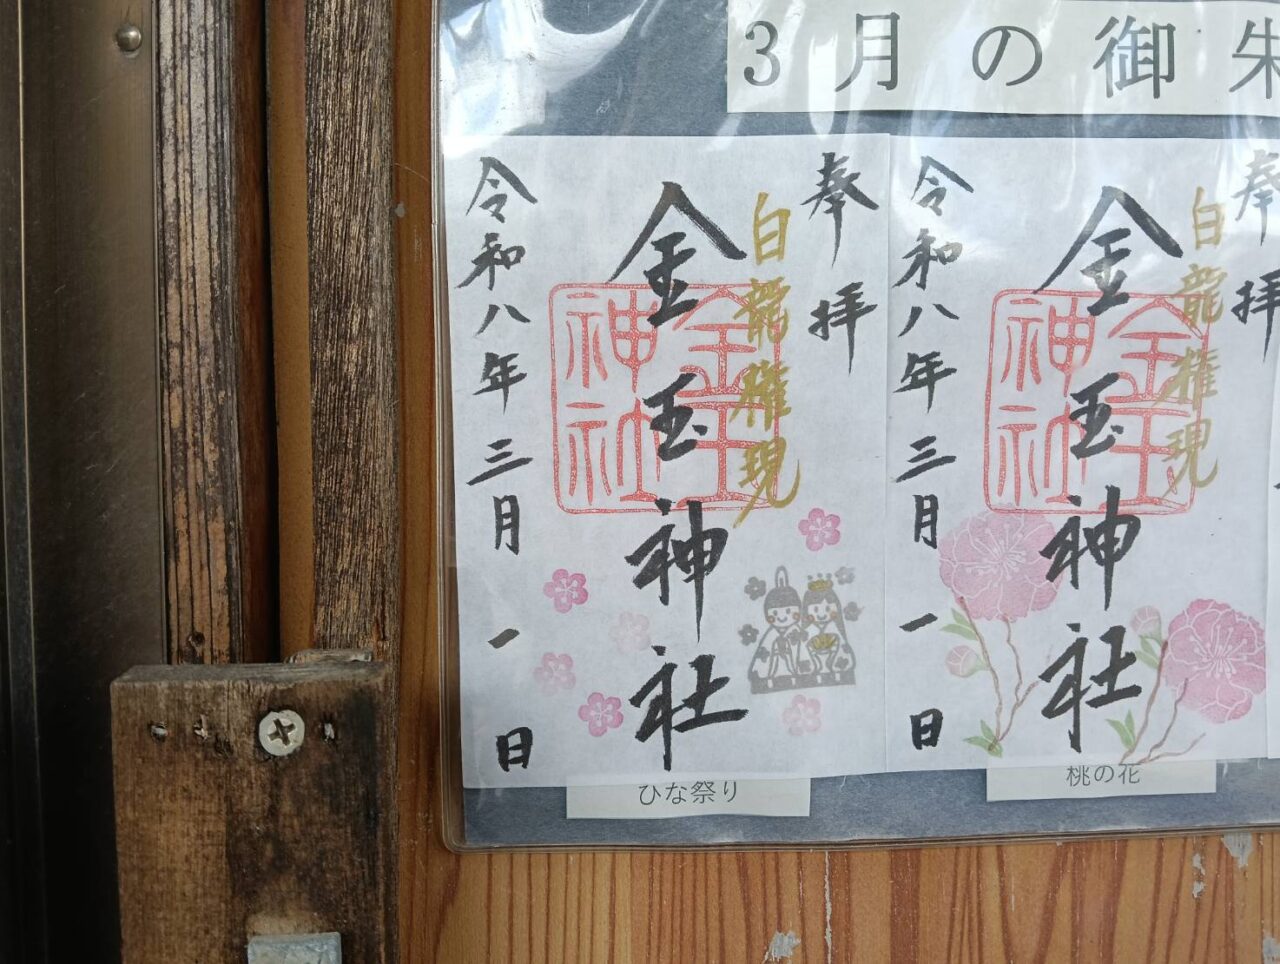 3月の御朱
奉拝
白龍権現
金玉神社
令和八年三月一日
金玉神社
ひな祭り
奉拝
白龍権現
金玉神社
令和八年三月一日
金玉神社
桃の花